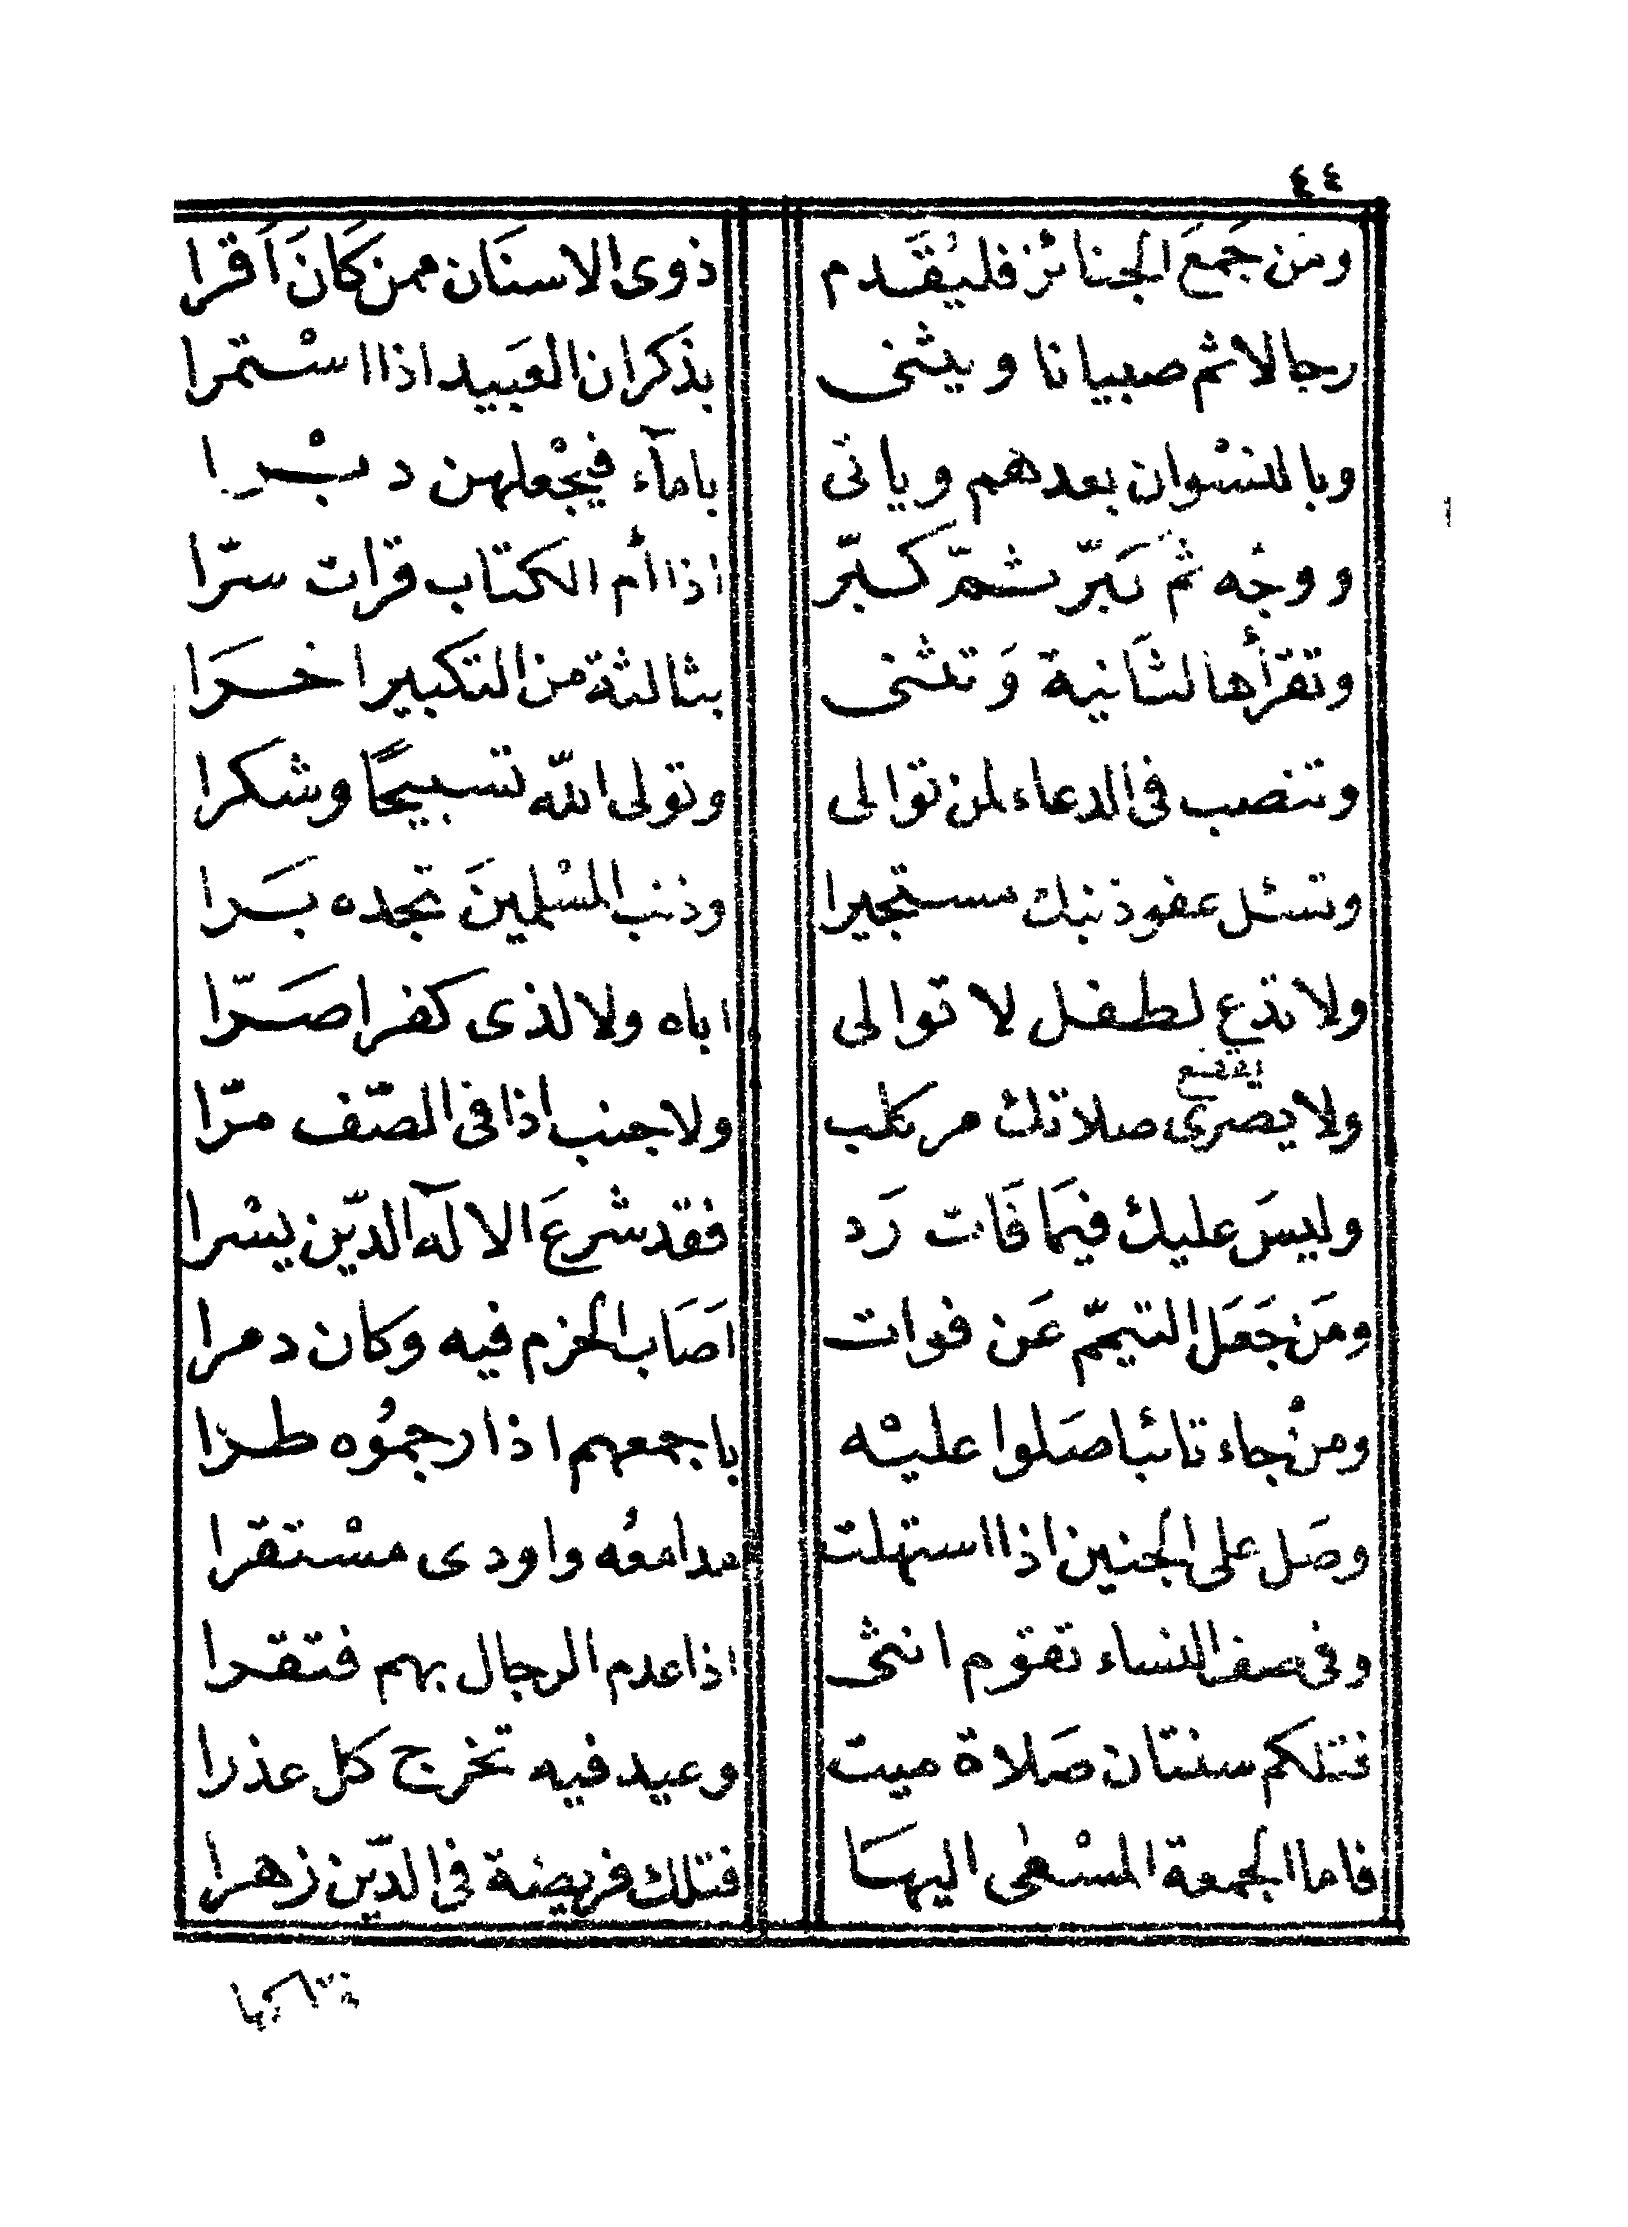 ٤٤
ومَن جَمعَ الجنائز فليُقَدم ذوى الاسنَان ممن كَانَ اَقرا
رجالا ثم صبيانا ويثنى بذكران العَبيد اذا استْمرا
وبالنسْوان بعدهم وياتى باماۤء فيجْعلهن دبْرا
ووجه ثم كبّر ثم كبّر اذا أم الكتاب قرات سرّا
وتقرأها لثَانية وَتثنى بثالثة من التكبير اخَرا
وتنصب فى الدعاء لمن توالى وتولى اللّه تسبيحًا وشكرا
وتسئل عفو ذنبك مستجيرا وذنب المسْلمينَ تجده بَرا
ولا تدع لطفل لا توالى اباه ولا لذى كفر اصَرّا
ولا يضرى صلاتك مر كلب ولا جنب اذا فى الصّف مرّا
يقطع
وليسَ عليك فيمَا فَات رَد فقد شرعَ الالۤه الدّين يسْرا
ومَن جَعَل التيمّم عَن فوات اَصَاب الحزم فيه وكان دمرا
ومنْ جاء تائبا صَلوا عليْه باجمعهم اذا رجمُوه طرا
وصَل على الجنين اذا استهلت مدامعُه واودى مسْتقرا
وفى صف النساء تقوم انثى اذا عدم الرجال بهم فتقرا
فتلكم سنتان صَلاة ميت وعيد فيه تخرج كل عذرا
فاما الجمعة المسْعى اليهَا فتلك فريضة فى الدّين زهرا